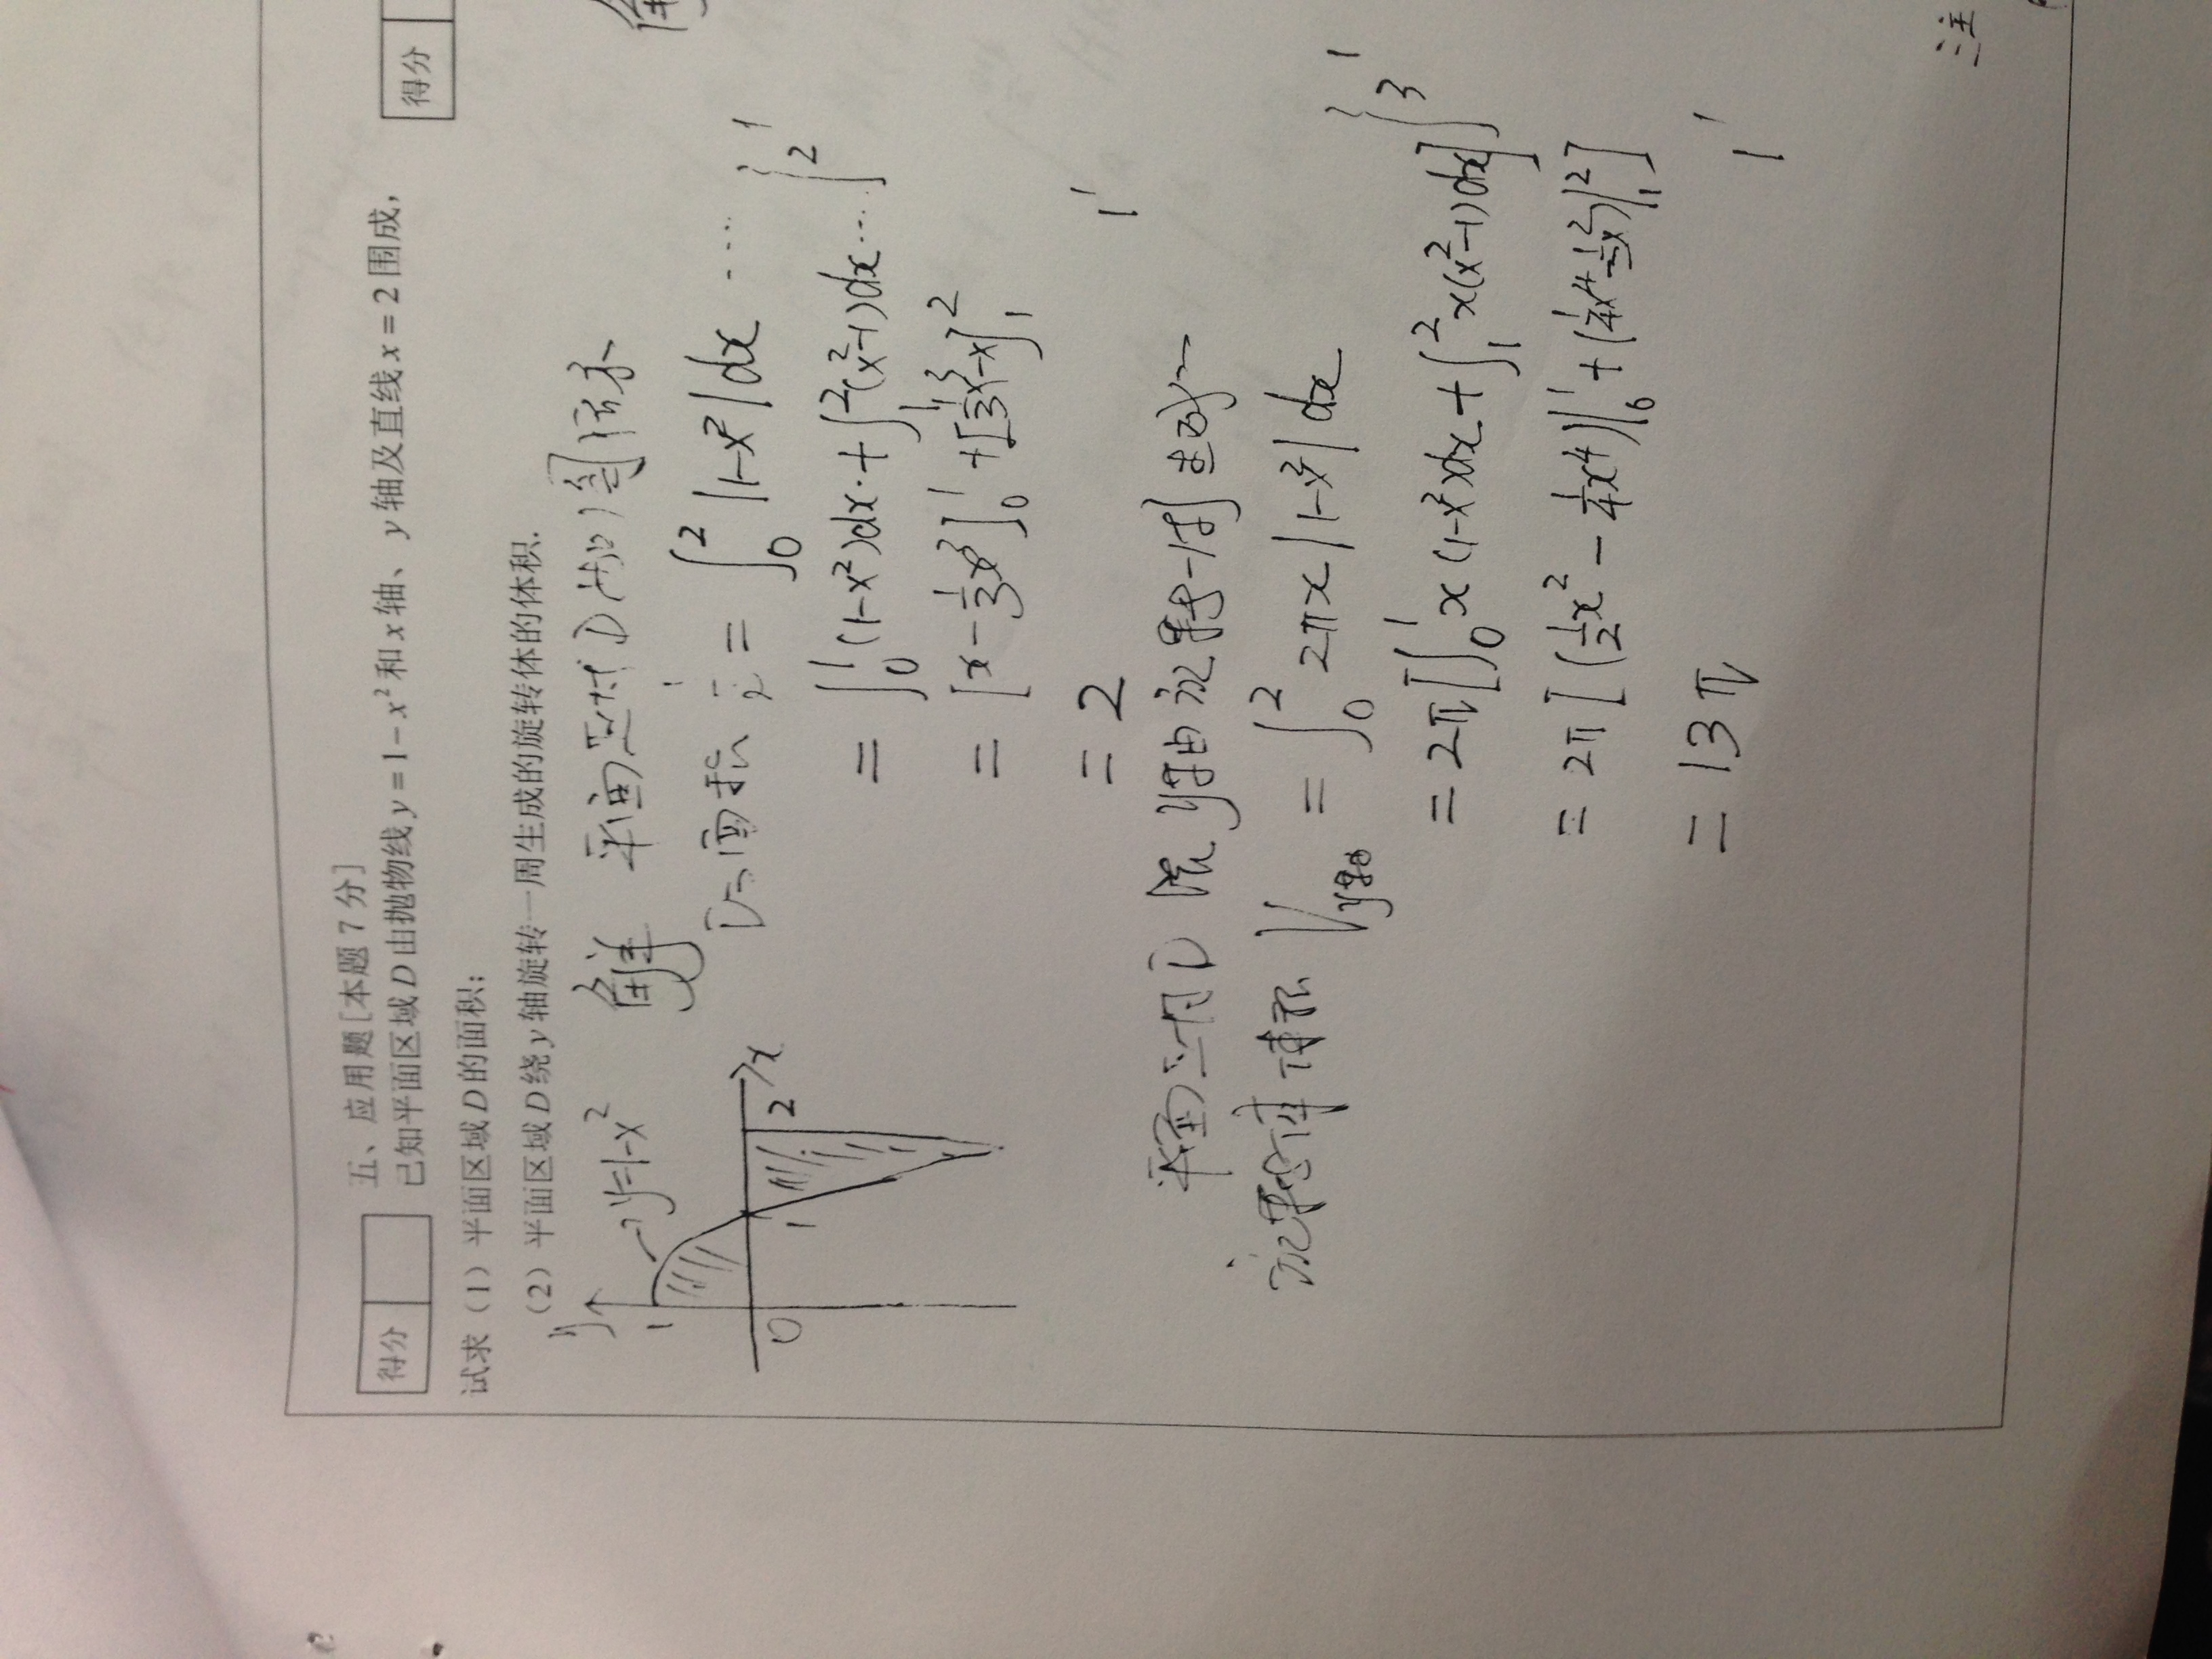 五、应用题[本题7分]
得分
已知平面区域D由抛物线y=1-x²和x轴、y轴及直线x=2围成，
得分
试求（1）平面区域D的面积；
（2）平面区域D绕y轴旋转一周生成的旋转体的体积.
y
1
y=1-x²
0
1
2
x
解 平面区域D如图所示
D的面积 = ∫₀² |1-x²| dx ····
2'
= ∫₀¹ (1-x²)dx + ∫₁² (x²-1)dx ···
= [x - 1/3 x³]₀¹ + [1/3 x³ - x]₁²
= 2
1'
平面区域D绕y轴旋转一周生成的
旋转体体积 V_y轴 = ∫₀² 2πx |1-x²| dx
3'
= 2π[∫₀¹ x(1-x²)dx + ∫₁² x(x²-1)dx]
= 2π[(1/2 x² - 1/4 x⁴)|₀¹ + (1/4 x⁴ - 1/2 x²)|₁²]
= 13π
1'
注